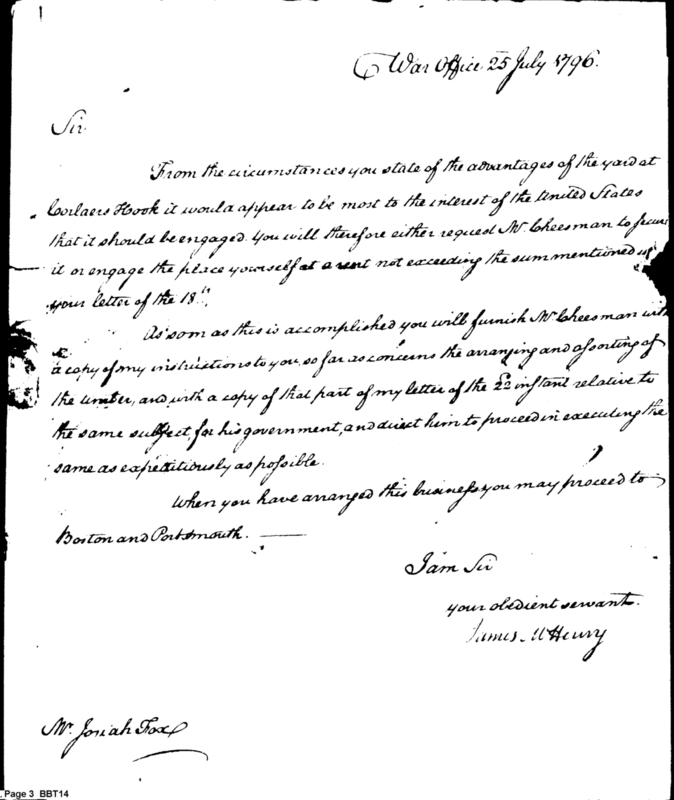 War Office 25 July 1796.
Sir.
From the circumstances you state of the advantages of the yard at
Corlaers Hook it would appear to be most to the interest of the United States
that it should be engaged. You will therefore either request Mr. Cheesman to secure
it or engage the place yourself at a rent not exceeding the sum mentioned in
your letter of the 18th.
As soon as this is accomplished you will furnish Mr Cheesman with
a copy of my instructions to you, so far as concerns the arranging and assorting of
the timber, and with a copy of that part of my letter of the 22 instant relative to
the same subject, for his government, and direct him to proceed in executing the
same as expeditiously as possible.
When you have arranged this business you may proceed to
Boston and Portsmouth.
I am Sir
your obedient servant.
James McHenry
Mr. Josiah Fox
Page 3 BBT14